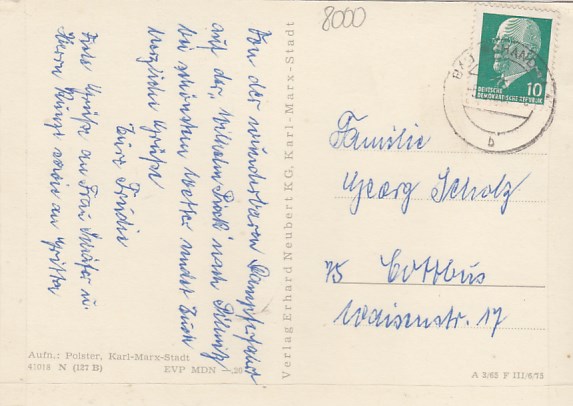 Von der wunderbaren Dampferfahrt
auf der "Wilhelm Pieck" nach Pillnitz
bei schönstem Wetter sendet Euch
herzliche Grüße
Eure Trudie
Viele Grüße an Frau Schäfer u.
Herrn Kunze sowie an Gritta
Aufn.: Polster, Karl-Marx-Stadt
41018 N (127 B) EVP MDN -.20
Verlag Erhard Neubert KG, Karl-Marx-Stadt
8000
10
DEUTSCHE
DEMOKRATISCHE REPUBLIK
BAD
b
Familie
Georg Scholz
75 Cottbus
Waisenstr. 17
A 2/63 F III/6/73